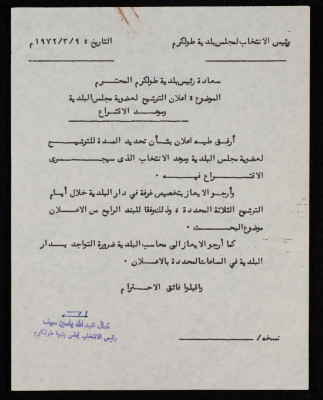 رئيس الانتخاب لمجلس بلدية طولكرم
التاريخ : ١٩٧٢/٣/٩ م
سعادة رئيس بلدية طولكرم المحترم
الموضوع : اعلان الترشيح لعضوية مجلس البلدية
وموعد الاقتراع
أرفق طيه اعلان بشأن تحديد المدة للترشيح
لعضوية مجلس البلدية وموعد الانتخاب الذى سيجرى
الاقتراع فيه .
وأرجو الايعاز بتخصيص غرفة في دار البلدية خلال أيام
الترشيح الثلاثة المحددة ، وذلك وفقا للبند الرابع من الاعلان
موضوع البحث .
كما أرجو الايعاز الى محاسب البلدية ضرورة التواجد بدار
البلدية في الساعات المحددة بالاعلان .
واقبلوا فائق الاحترام
عبد الله ياسين سيف
رئيس الانتخاب لمجلس بلدية طولكرم
نسخه/